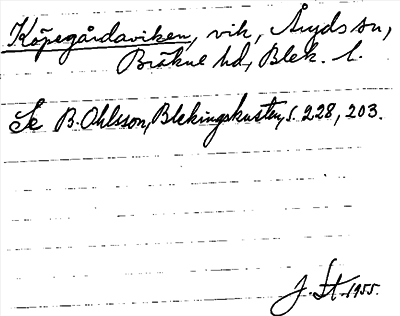 Köpegårdaviken, vik, Åryds sn,
Bräkne hd, Blek. l.
Se B. Ohlsson, Blekingskusten, s. 228, 203.
J. St. 1955.